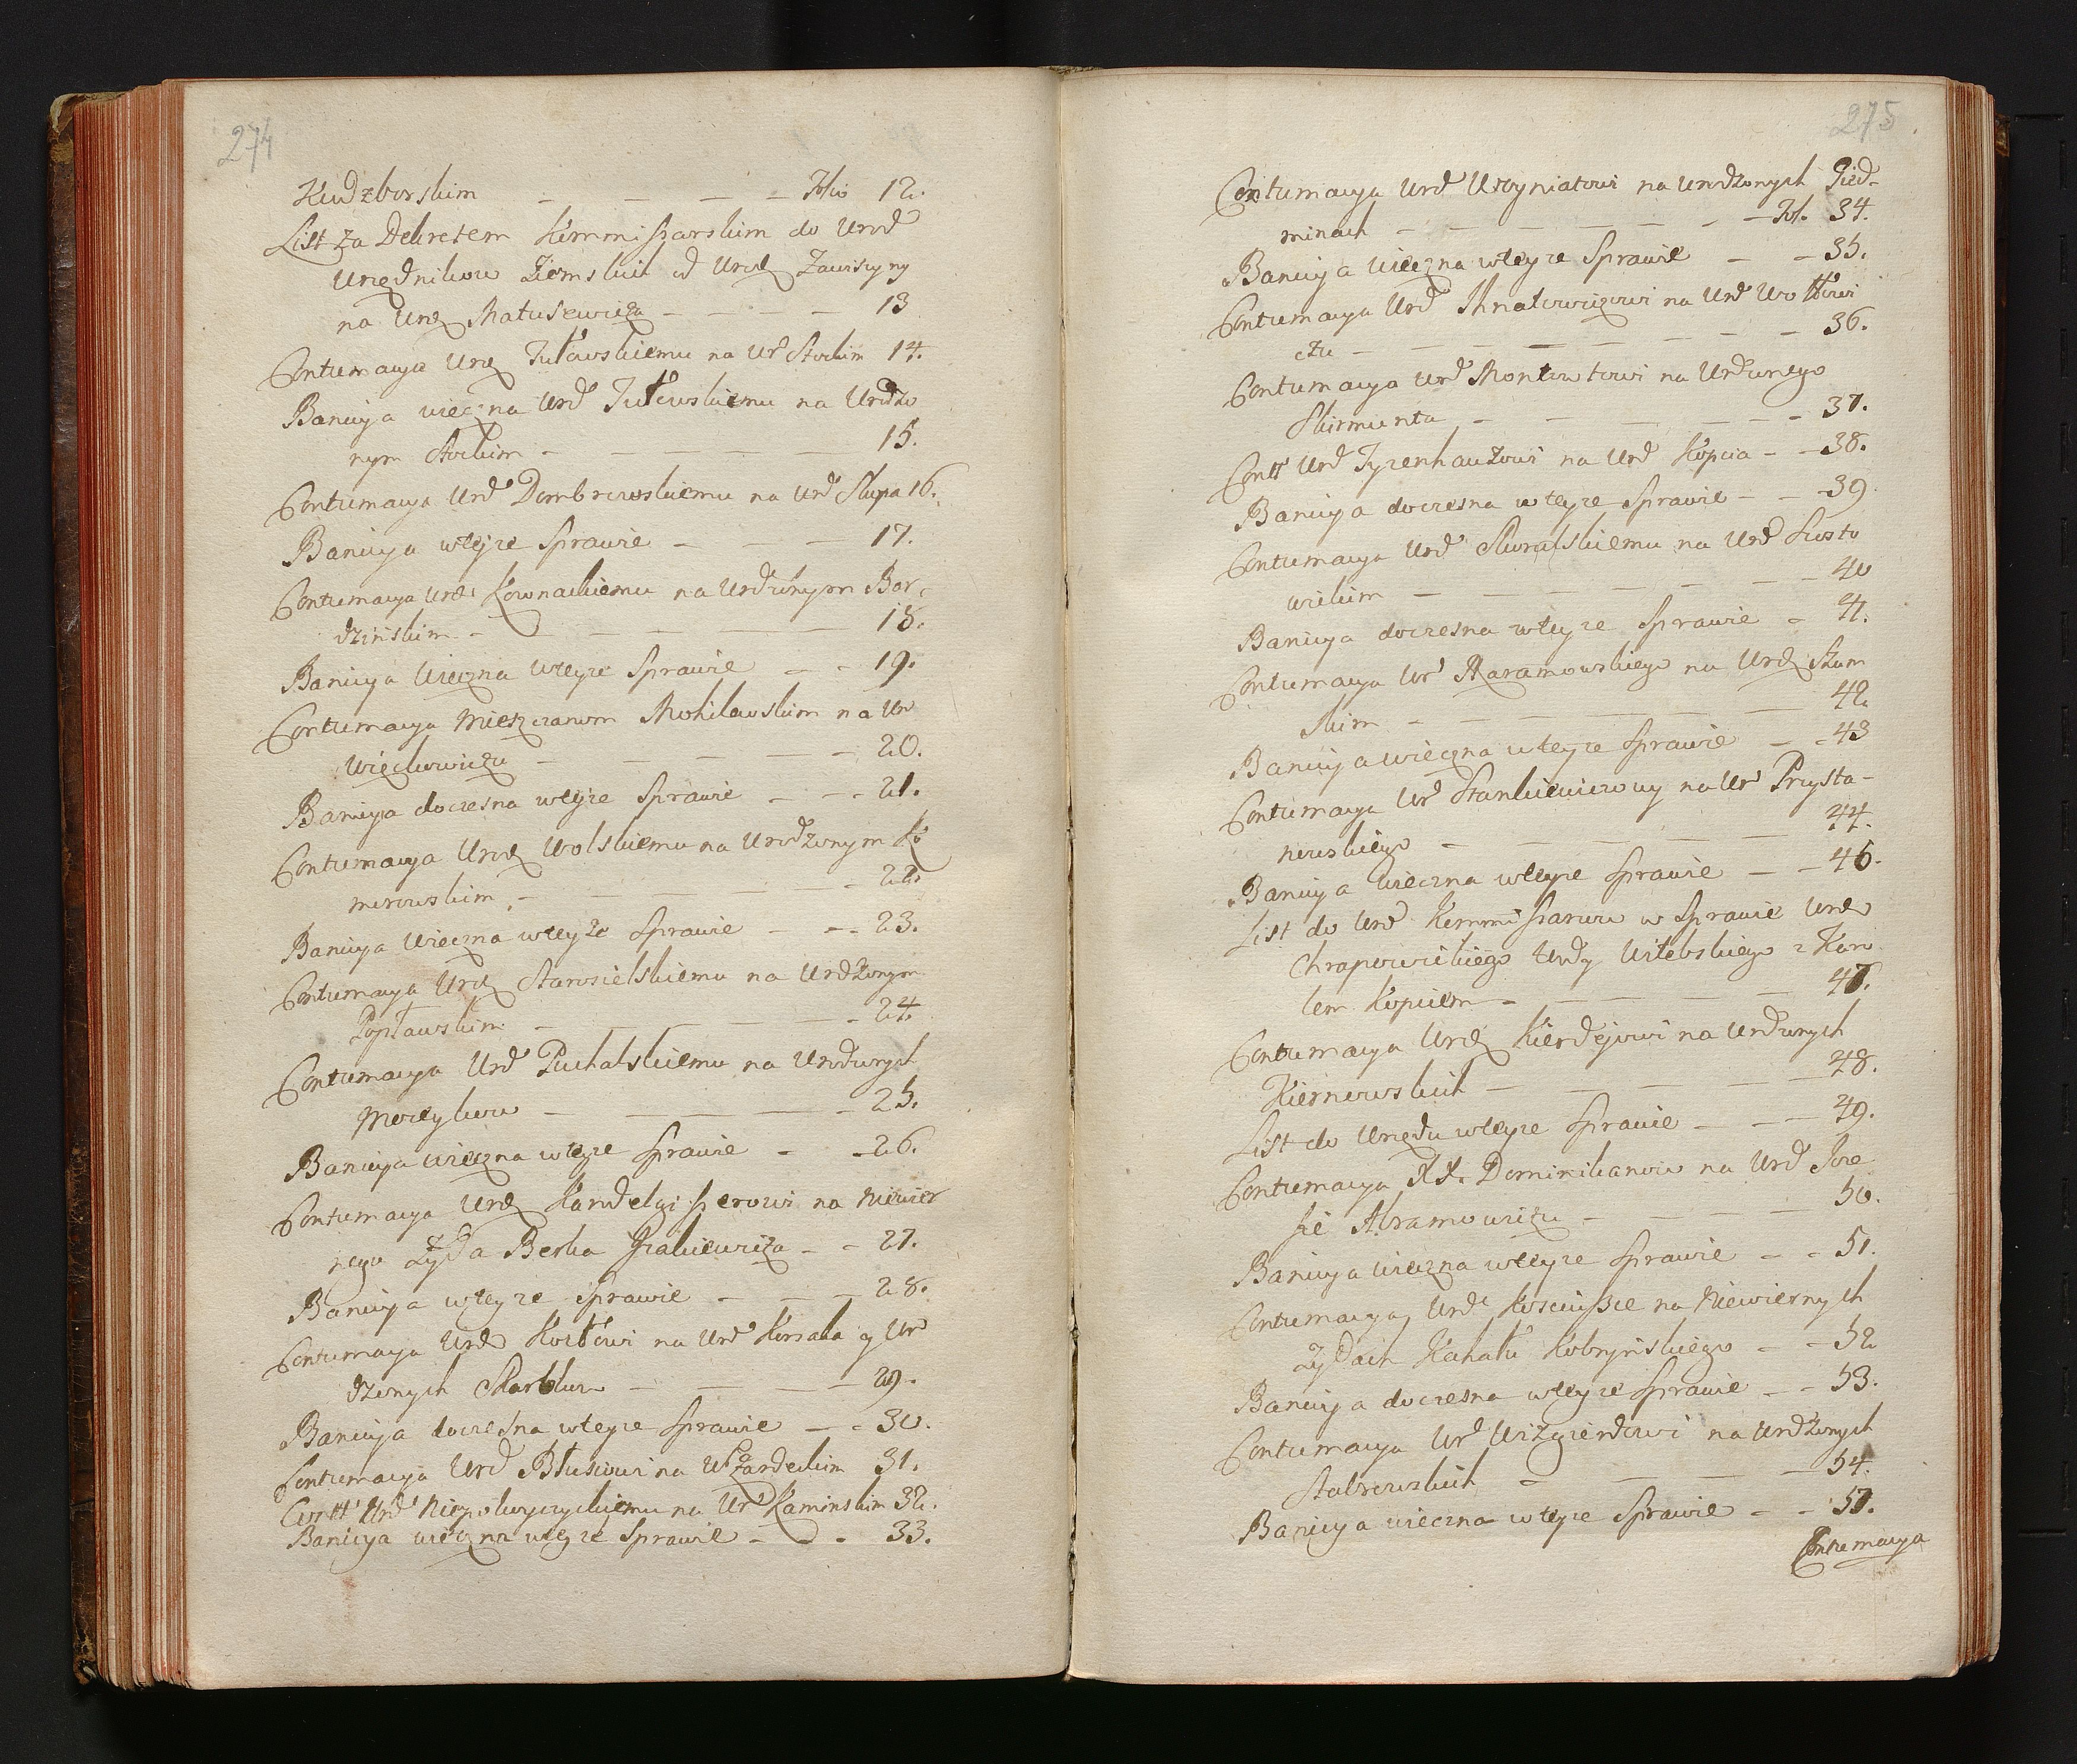 274
Kudzborskim — — — — Folio 12.
List za Dekretem Kommissarskim do Urod
Urzędnikow Ziemskich od Urod Zawiszyny
na Urod Matusewicza — — — — 13
Contumacya Urod Tułowskiemu na Ur Stockim 14.
Banicya wieczna Urd Tułowskiemu na Urodzo
nym Stockim — — — — — 15.
Contumacya Urd Dombrowskiemu na Urd Słupa 16.
Banicya wteyze Sprawie — — — 17.
Contumacya Urod Kownackiemu na Urdzonym Bor-
dzinskim — — — — — 18.
Banicya Wieczna wteyze Sprawie — — 19.
Contumacya Mieszczanom Mohilewskim na Ur
Więckowiczu — — — — — 20.
Banicya doczesna wteyze Sprawie — — — 21.
Contumacya Urod Wolskiemu na Urodzonym Ko
morowskim — — — — — 22.
Banicya Wieczna wteyże Sprawie — — — 23.
Contumacya Urod Starosielskiemu na Urdzonym
Popławskim — — — — — 24.
Contumacya Urd Puchalskiemu na Urodzonych
Moczykow — — — — — 25.
Banicya wieczna wteyze Sprawie — — 26.
Contumacya Urod na Niewier
nego Zyda Berka Izakiewicza — — 27.
Banicya wteyze Sprawie — — — 28.
Contumacya Urod Koziełowi na Urd Korsaka y Uro
dzonych — — — — 29.
Banicya doczesna wteyze Sprawie — — 30.
Contumacya Urd na Ur Zardeckim 31.
Contt Urd Niepokoyczyckiemu na Ur Kaminskim 32.
Banicya wieczna wteyze Sprawie — — — 33.
275
Contumacya Urd na Urodzonych Gied-
minach — — — — — — Fol. 34.
Banicya wieczna wteyze Sprawie — — 35.
Contumacya Urd Ihnatowiczowi na Urd Wołłowi
czu — — — — — — — 36.
Contumacya Urd Montowtowi na Urdzonego
Skirmunta — — — — — 37.
Contt Urd Tyzenhauzowi na Urd Kopcia — — 38.
Banicya doczesna w teyze Sprawie — — 39.
Contumacya Urd Skoralskiemu na Urd Kosto
wickim — — — — — — 40
Banicya doczesna wteyze Sprawie — 41.
Contumacya Ur Karamowskiego na Urod Szum
skim — — — — — — 42.
Banicya wieczna wteyze Sprawie — — 43
Contumacya Ur Stankiewiczowy na Ur Przysta-
nowskiego — — — — — 44.
Banicya wieczna wteyze Sprawie — — 46.
List do Urd Kommissarzow w Sprawie Urod
Chrapowickiego Wdy Witebskiego z Karo
lem Kopciem — — — — — 47.
Contumacya Urod Kierdejowi na Urdzonych
Kiernowskich — — — — — 48.
List do Urzędu wteyze Sprawie — — — 49.
Contumacya XX. Dominikanow na Urd Joze
fie Abramowiczu — — — — 50.
Banicya wieczna wteyze Sprawie — — 51.
Contumacya Urd Kosciuszce na Niewiernych
Zydach Kahału Kobrynskiego — — 52
Banicya doczesna wteyze Sprawie — — 53.
Contumacya Ur Wizgierdowi na Urdzonych
Stabrowskich — — — — 54.
Banicya wieczna wteyze Sprawie — — 57.
Contumacya